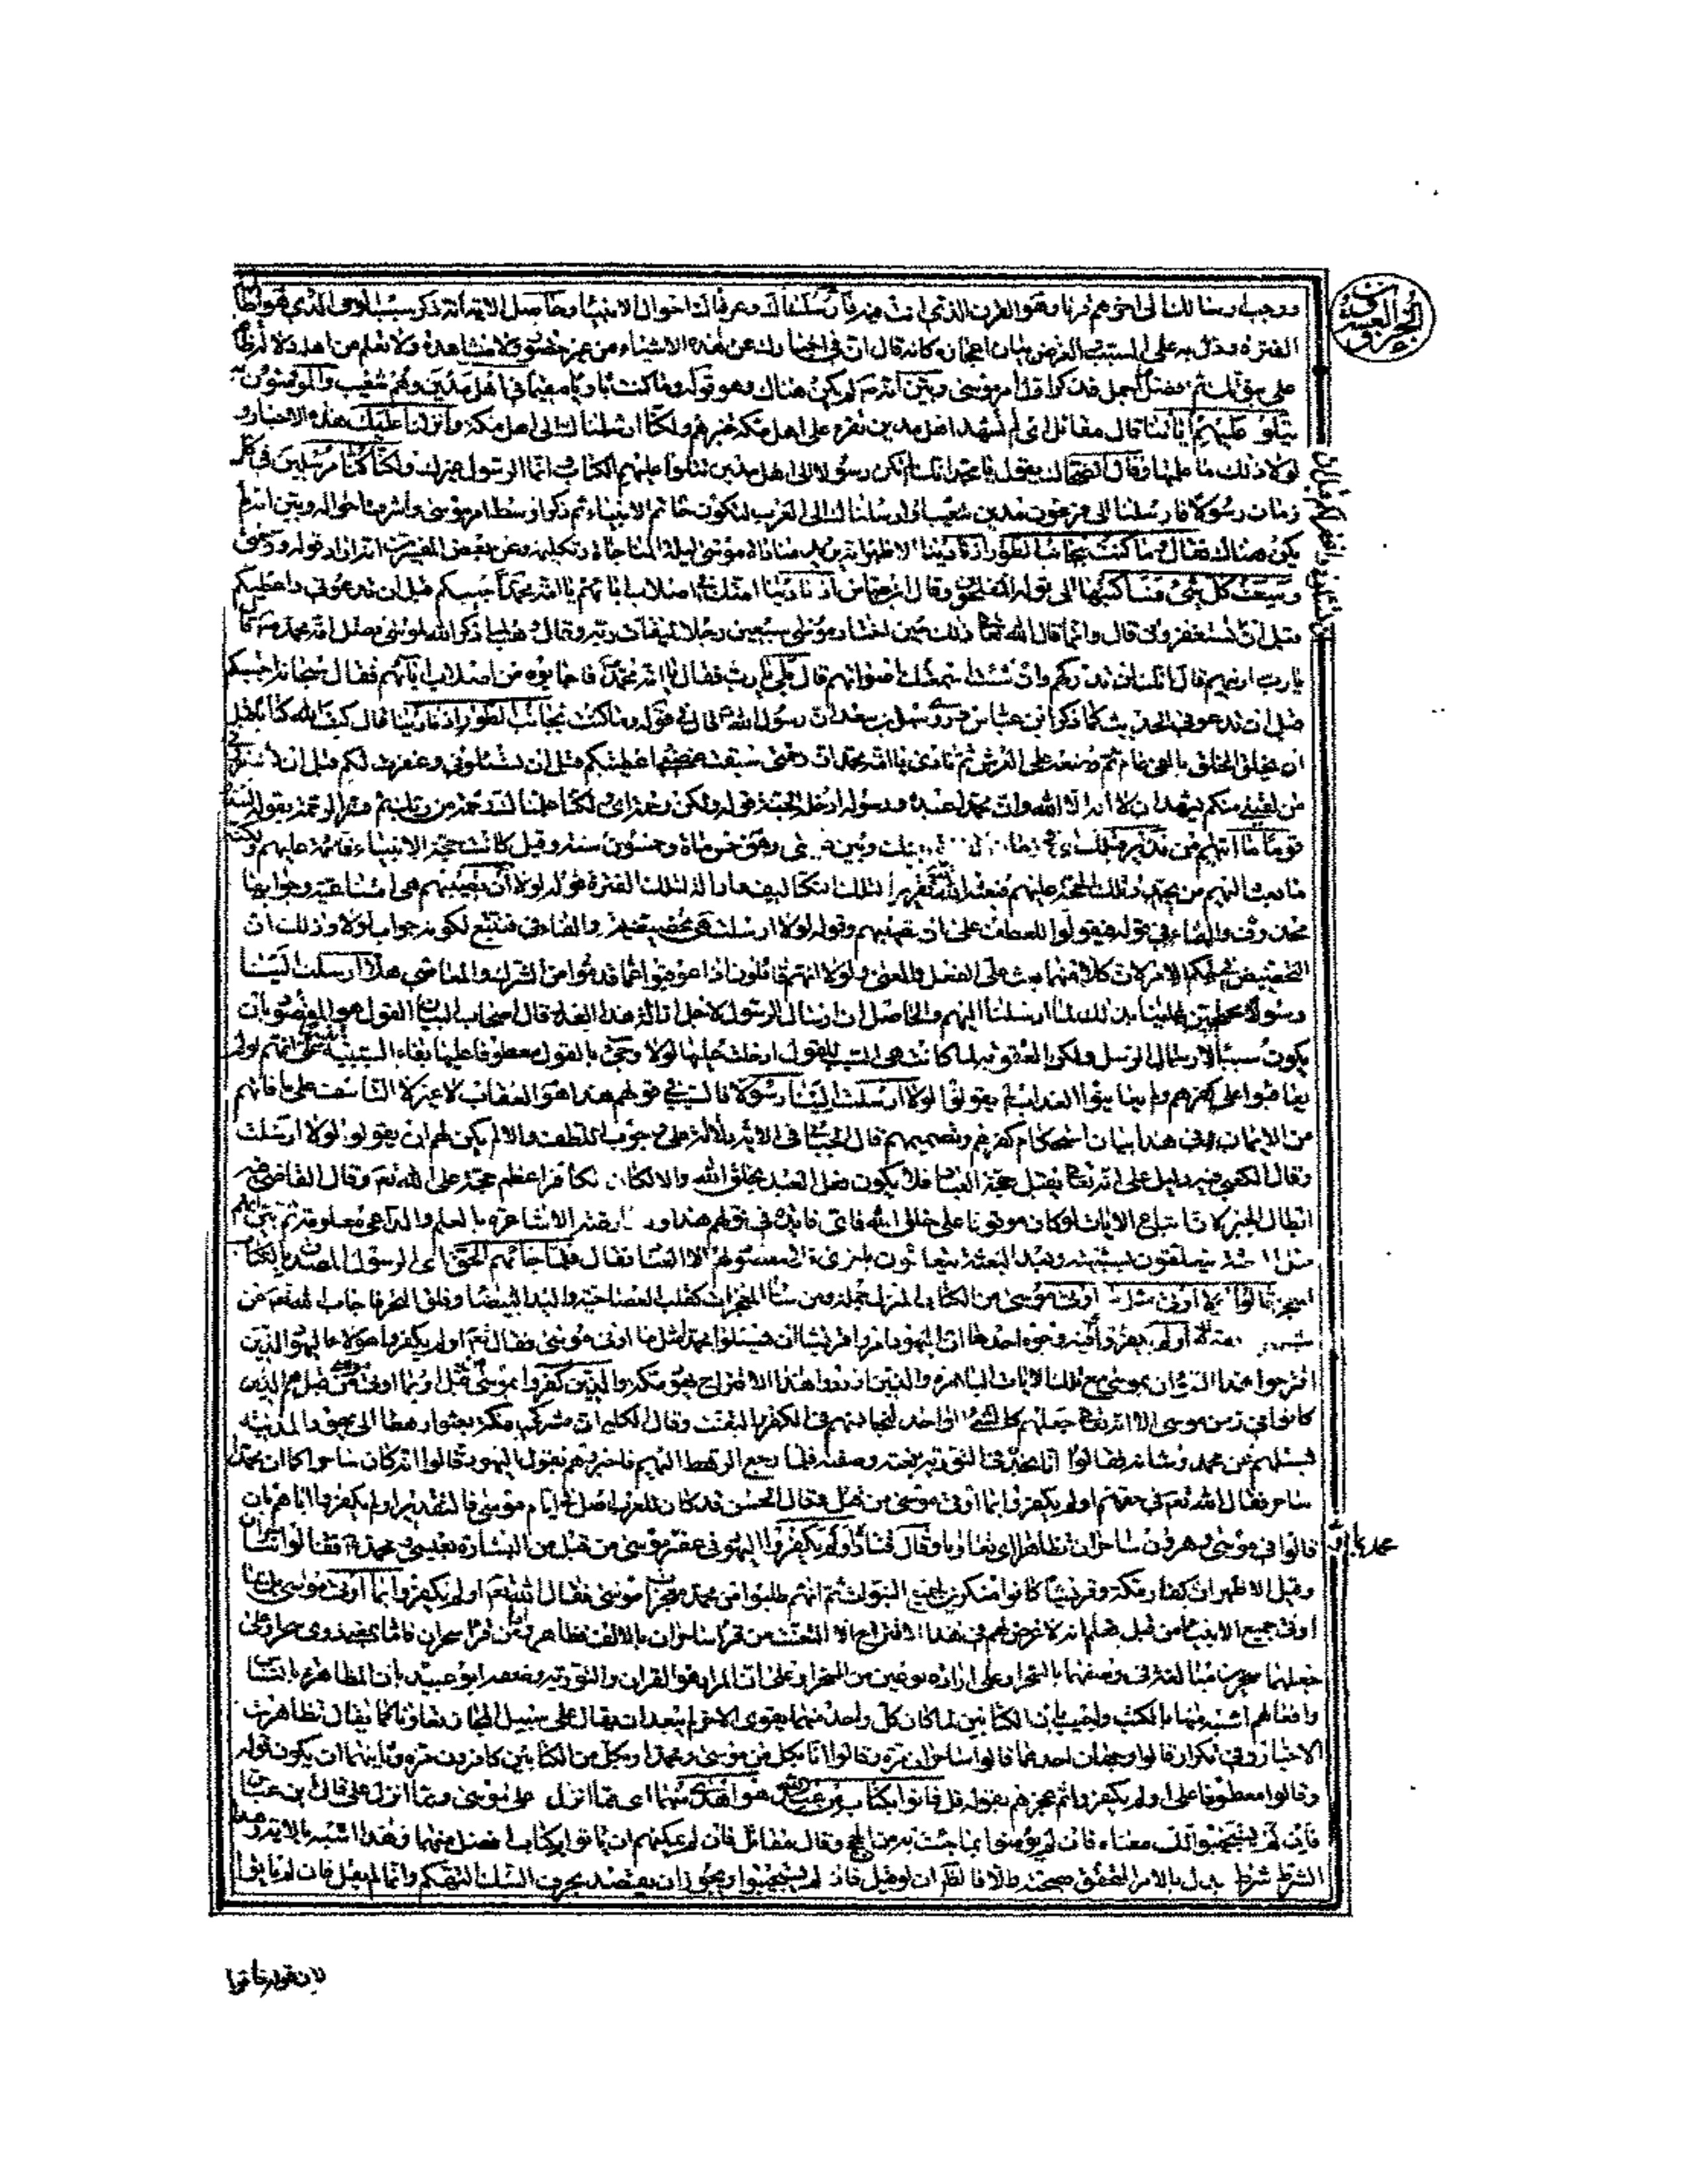 الجزو العشرون
ووجب ارسالك الى اخرهم قرنا وهو القرن الذي انت فيه فأرسلناك وعرفناك احوال الانبياء وحاصل الاية انه ذكر سبب الوحي الذي هو اطالة
الفترة ودل به على المسبب الغرض بيان اعجازه كانه قال ان في اخبارك عن هذه الاشياء من غير حضور ولا مشاهدة ولا تعلم من اهله دلالة ظاهرة
على نبوتك ثم فصل المجمل فذكر اول امر موسى وبين انه لم يكن هناك وهو قوله وما كنت ثاويا مقيما في اهل مدين وهم شعيب والمؤمنون به
تتلو عليهم اياتنا قال مقاتل اي لم تشهد اهل مدين فتقرء على اهل مكة خبرهم ولكنا ارسلناك الى اهل مكة وانزلنا عليك هذه الاخبار و
لولا ذلك ما علمتها وقال الضحاك يقول يا محمد انك لم تكن رسولا الى اهل مدين تتلوا عليهم الكتاب انما الرسول غيرك ولكنا كنا مرسلين في كل
زمان رسولا فارسلنا الى مدين شعيبا وارسلناك الى العرب لتكون خاتم الانبياء ثم ذكر اوسط امر موسى واشرف احواله وبين انه لم
يكن هناك فقال وما كنت بجانب الطور اذ نادينا الاظهر انه يريد مناداة موسى ليلة المناجاة وتكليمه وعن بعض المفسرين انه اراد قوله ورحمتي
وسعت كل شيء فساكتبها الى قوله المفلحون وقال ابن عباس اذ نادينا امتك في اصلاب ابائهم يا امة محمد اجبتكم قبل ان تدعوني واعطيتكم
قبل ان تستغفروني قال وانما قال الله ذلك حين اختار موسى سبعين رجلا لميقات ربه وقال وهب لما ذكر الله لموسى فضل امة محمد قال
يا رب ارنيهم قال انك لن تدركهم وان شئت سمعتك اصواتهم قال بلى يا رب فقال يا امة محمد فاجابوه من اصلاب ابائهم فقال سبحانه اجبتكم
قبل ان تدعوني الحديث كما ذكر ابن عباس وروى سهل بن سعد ان رسول الله قال في قوله وما كنت بجانب الطور اذ نادينا قال كتب الله كتابا قبل
ان يخلق الخلق بالفي عام ثم وضعه على العرش ثم نادى يا امة محمد ان رحمتي سبقت غضبي اعطيتكم قبل ان تسئلوني وغفرت لكم قبل ان تستغفروني
من لقيني منكم يشهد ان لا اله الا الله وان محمدا عبده ورسوله ادخله الجنة قوله ولكن رحمة اي لكنا علمناك رحمة من ربك ثم فسر الرحمة بقوله لتنذر
قوما ما اتيهم من نذير من قبلك وبين عيسى وهو خمس مائة وخمسون سنة وقيل كانت حجة الانبياء قائمة عليهم ولكنه
ما بعث اليهم من يجدد تلك الحجة عليهم فبعثه الله تقريرا لتلك التكاليف وازالة لتلك الفترة قوله لولا ان تصيبهم هي امتناعية وجوابها
محذوف والفاء في قوله فيقولوا للعطف على ان تصيبهم وقوله لولا ارسلت هي تحضيضية والفاء في فنتبع لكونه جواب لولا وذلك ان
التحضيض في حكم الامر لان كلا منهما بعث على الفعل والمعنى ولولا انهم قائلون اذا عوقبوا بما قدموا من الشرك والمعاصي هلا ارسلت الينا
رسولا محتجين علينا بذلك لما ارسلنا اليهم والحاصل ان ارسال الرسول لاجل ازالة هذا العذر قال اصحاب البيان القول هو المقصود بان
يكون سببا لارسال الرسل ولكن العقوبة لما كانت هي السبب للقول ادخلت عليها لولا وجيء بالقول معطوفا عليها بفاء السببية تنبيها على انهم لو لم
يعاقبوا على كفرهم ولم يعاينوا العذاب لم يقولوا لولا ارسلت الينا رسولا فالسبب في قولهم هذا هو العقاب لا غير لا التاسف على ما فاتهم
من الايمان وفي هذا بيان استحكام كفرهم وتصميمهم قال الجبائي في الاية دلالة على وجوب اللطف والا لم يكن لهم ان يقولوا لولا ارسلت
وقال الكعبي فيه دليل على انه تعالى يقبل حجة العباد فلا يكون فعل العبد بخلق الله والا لكان للكافر اعظم حجة على الله تعالى وقال القاضي فيه
ابطال الجبر لان اتباع الايات لو كان موقوفا على خلق الله فاي فائدة في قولهم هذا وعارضته الاشاعرة بالعلم والداعي معلومة ثم بين انهم
قبل البعثة يتعلقون بشبهة وبعد البعثة يتعلقون باخرى فلا مقصود لهم الا العناد فقال فلما جاءهم الحق اي الرسول المصدق بالكتاب
المعجز قالوا لولا اوتي مثل ما اوتي موسى من الكتاب المنزل جملة ومن سائر المعجزات كقلب العصا حية واليد البيضاء وفلق البحر فاجاب الله تعالى عن
شبهتهم بقوله اولم يكفروا وفيه وجوه احدها ان اليهود امروا قريشا ان يسئلوا محمدا مثل ما اوتي موسى فقال تعالى اولم يكفروا هؤلاء اليهود الذين
اقترحوا هذا السؤال بموسى مع تلك الايات الباهرة والذين اوردوا هذا الاقتراح يهود مكة والذين كفروا بموسى من قبل او بما اوتي موسى من قبل هم الذين
كانوا في زمن موسى الا انه تعالى جعلهم كالشيء الواحد لتجانسهم في الكفر والتعنت وقال الكلبي ان مشركي مكة بعثوا رهطا الى يهود المدينة
ليسئلهم عن محمد وشانه فقالوا انا نجده في التورية بنعته وصفته فلما رجع الرهط اليهم فاخبروهم بقول اليهود قالوا انه كان ساحرا كما ان محمدا
ساحر فقال الله تعالى في حقهم اولم يكفروا بما اوتي موسى من قبل وقال الحسن قد كان للعرب اصل في ايام موسى فالتقدير اولم يكفر اباؤهم بان
قالوا في موسى وهرون ساحران تظاهرا اي تعاونا وقال قتادة اولم يكفروا اليهود في عصر موسى من قبل من البشارة بعيسى ومحمد فقالوا ساحران
وقيل الاظهر ان كفار مكة وقريشا كانوا منكرين لجميع النبوات ثم انهم طلبوا من محمد معجزات موسى فقال الله تعالى اولم يكفروا بما اوتي موسى بل بما
اوتي جميع الانبياء من قبل فعلم انه لا غرض لهم في هذا الاقتراح الا التعنت من قرأ ساحران بالالف فظاهر ومن قرأ سحران فاما بمعنى ذوى سحر او على
جعلهما سحرين مبالغة في وصفهما بالسحر او على ارادة نوعين من السحر او على ان المراد هو القران والتورية وضعفه ابو عبيد بان المظاهرة بالناس
وافعالهم اشبه منها بالكتب واجيب بان الكتابين لما كان كل واحد منهما يقوي الاخر لم يبعد ان يقال على سبيل المجاز تعاونا كما يقال تظاهرت
الاخبار وفي تكرار قالوا وجهان احدهما قالوا ساحران مرة وقالوا انا بكل من موسى ومحمد او بكل من الكتابين كافرون مرة وثانيهما ان يكون قوله
وقالوا معطوفا على اولم يكفروا ثم عجزهم بقوله قل فاتوا بكتاب من عند الله هو اهدى منهما اي مما انزل على موسى ومما انزل علي قال ابن عباس
فان لم يستجيبوا لك معناه فان لم يؤمنوا بما جئت به من الحجج وقال مقاتل فان لم يمكنهم ان ياتوا بكتاب افضل منهما وهذا اشبه بالاية وهذا
الشرط شرط يدل بالامر المتحقق صحته والا فالظاهر ان لو قيل فاذا لم يستجيبوا ويجوز ان يقصد بحرف الشك التهكم وانما لم يقل فان لم ياتوا
لان قوله فاتوا